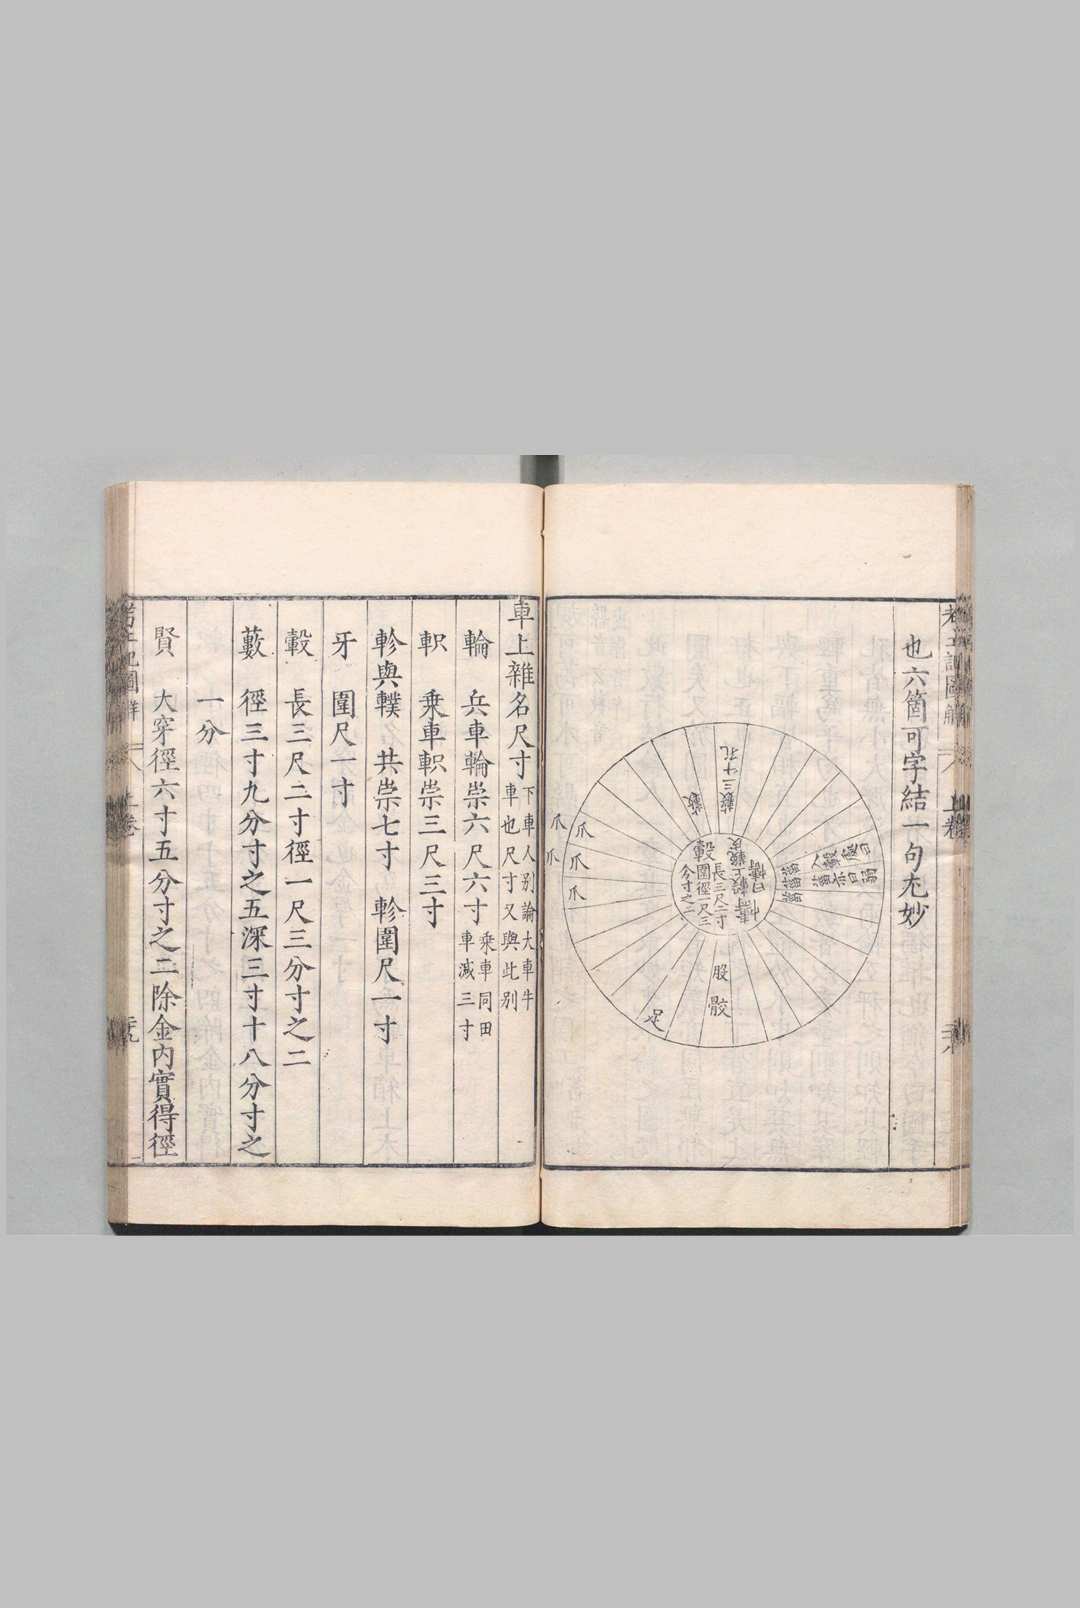 也六箇可字結一句尤妙
藪三十孔
藪
爪
爪
爪
爪
爪
轂
長三尺二寸
圍徑一尺三
分寸之二
幬
股
骹
車上雜名尺寸
下車人別論大車牛
車也尺寸又與此別
輪 兵車輪崇六尺六寸
乘車同田
車減三寸
軹 乘車軹崇三尺三寸
軫與轐 共崇七寸 軫圍尺一寸
牙 圍尺一寸
轂 長三尺二寸徑一尺三分寸之二
藪 徑三寸九分寸之五深三寸十八分寸之
一分
賢 大穿徑六寸五分寸之二除金內實得徑